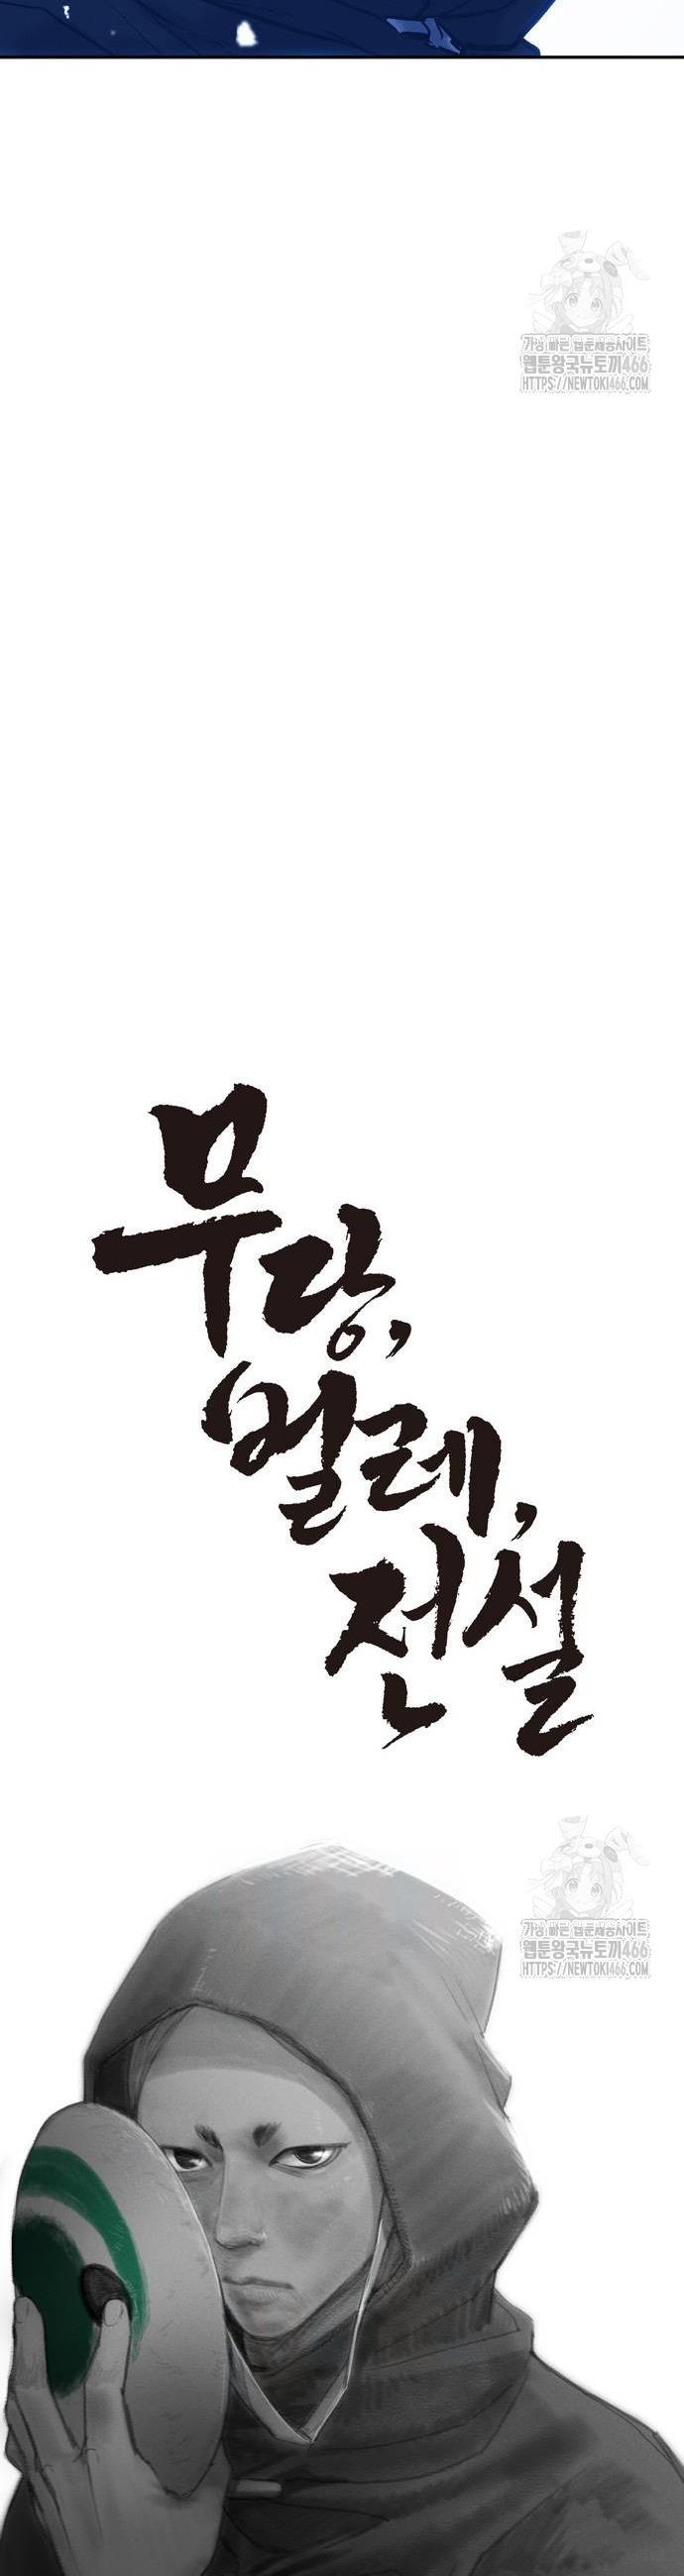 가장 빠른 웹툰제공사이트
웹툰왕국뉴토끼466
HTTPS://NEWTOKI466.COM
무당,
벌레,
전설
가장 빠른 웹툰제공사이트
웹툰왕국뉴토끼466
HTTPS://NEWTOKI466.COM